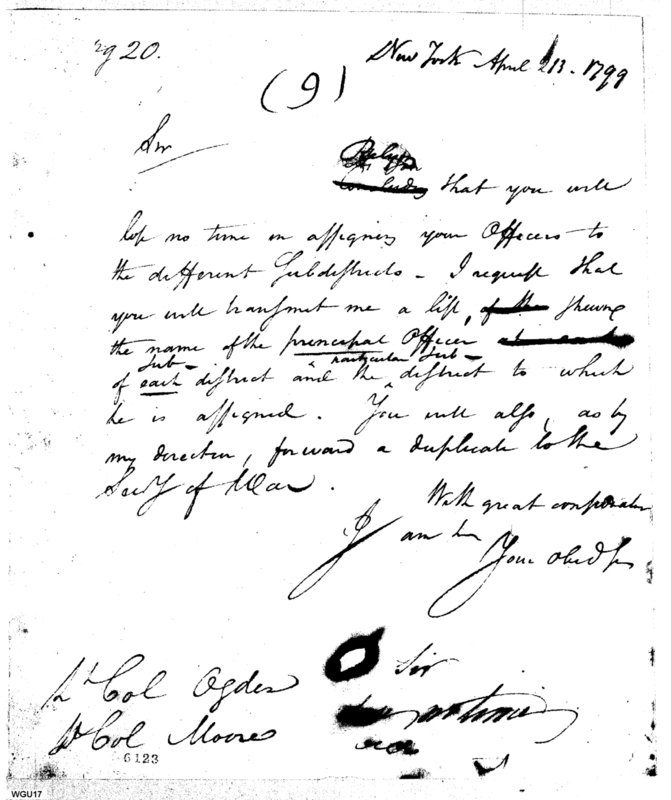 20.
New York April 23. 1799
(9)
Sir
Relying
concluding that you will
lose no time in assigning your Officers to
the different Subdistricts – I request that
you will transmit me a list, of the shewing
the name of the principal Officer
Sub- particular Sub-
of each district and the district to which
he is assigned. You will also, as by
my direction, forward a duplicate to the
Secy of War.
With great consideration
I am
Your obed
Sir
Lt Col Ogden
Lt Col Moore
6123
WGU17